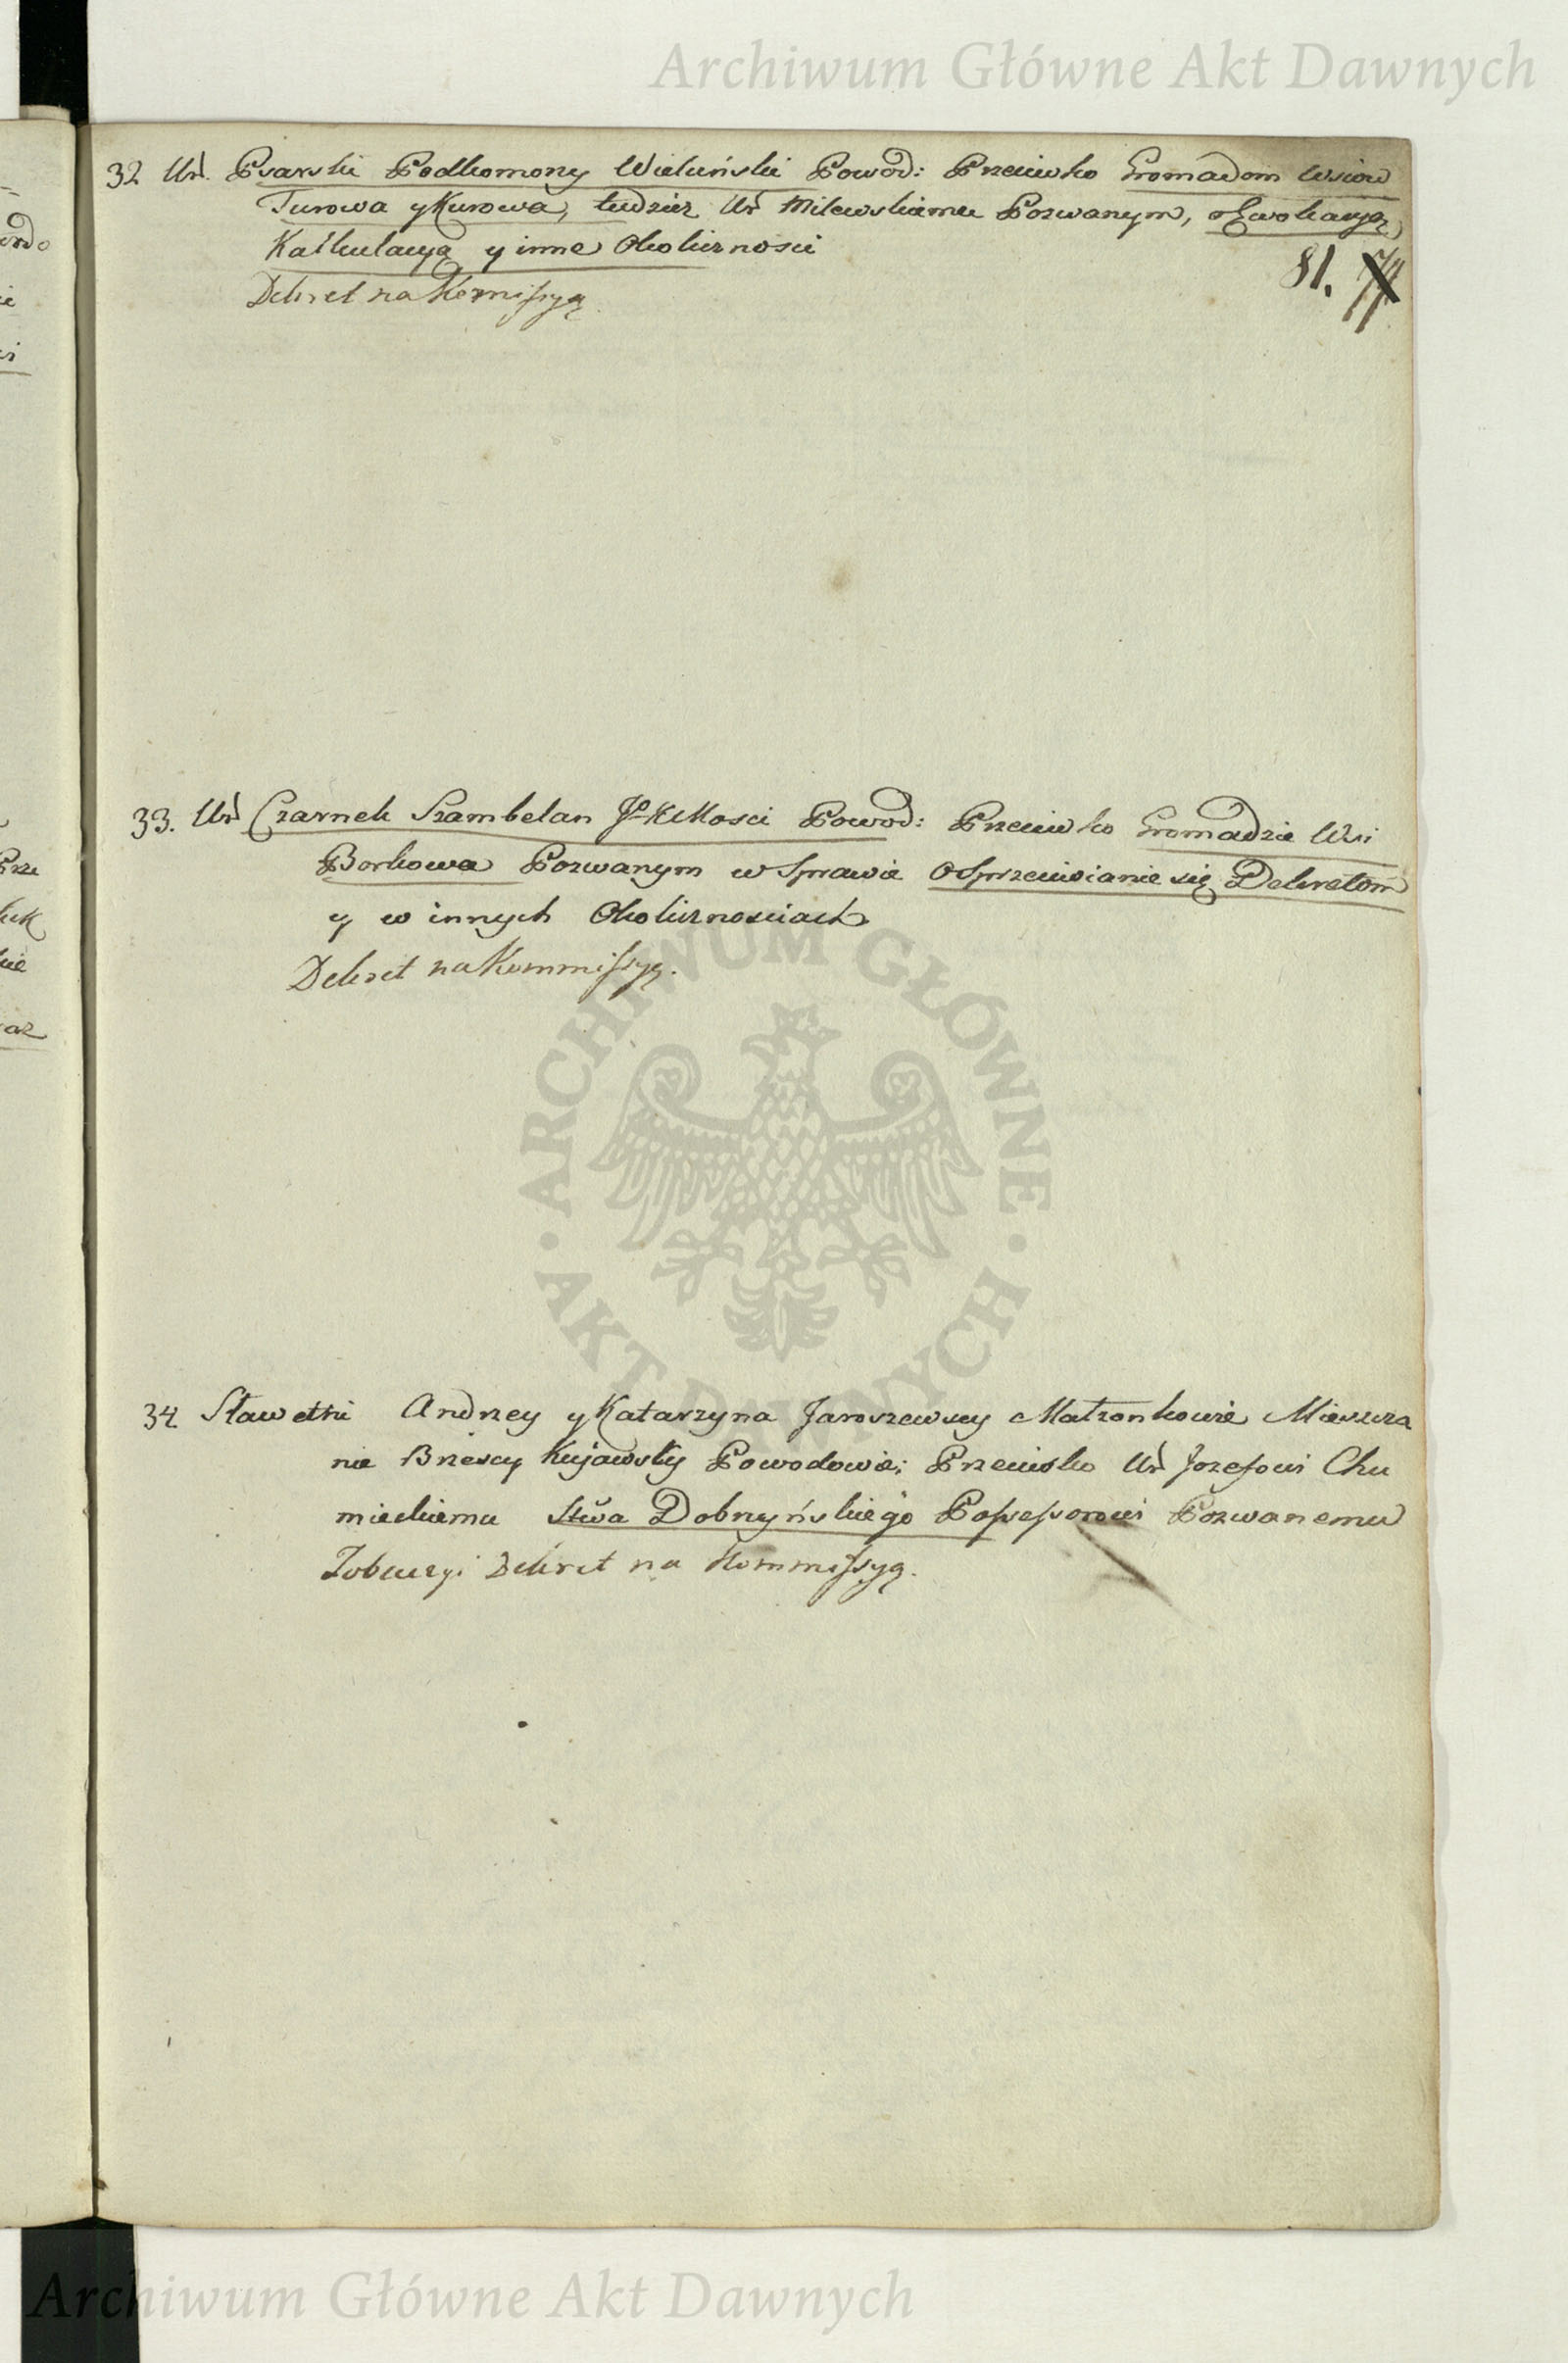 Archiwum Główne Akt Dawnych
32 Ur. Psarski Podkomorzy Wieluński Powod: Przeciwko Gromadom Wsiow
Turowa y Kurowa, tudzież Ur Milewskiemu Pozwanym, o Ewokacyą,
Kalkulacyą y inne Okoliznosci
81.
Dekret na Komissyą.
33. Ur Czarnek Szambelan JKMosci Powod: Przeciwko Gromadzie Wsi
Borkowa Pozwanym w Sprawie o Sprzeciwianie się Dekretom
y w innych Okolicznosciach
Dekret na Kommissyą.
34 Sławetni Andrzey y Katarzyna Jaroszewscy Małżonkowie Mieszcza
nie Brzescy Kujawscy Powodowie; Przeciwko Ur Jozefowi Chu
mieckiemu Stwa Dobrzyńskiego Possessorowi Pozwanemu
Dekret na Kommissyą.
ARCHIWUM GŁÓWNE · AKT DAWNYCH ·
Archiwum Główne Akt Dawnych